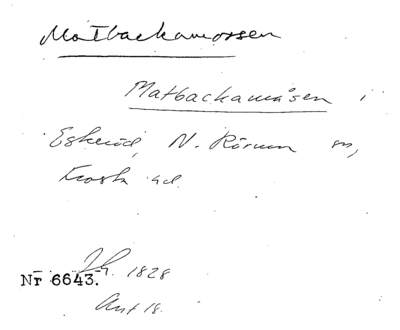 Matbackamossen
Matbackamåsen i
Eskeröd, N. Rörum sn,
Frosta hd.
1828
Nr 6643.
Art 18.